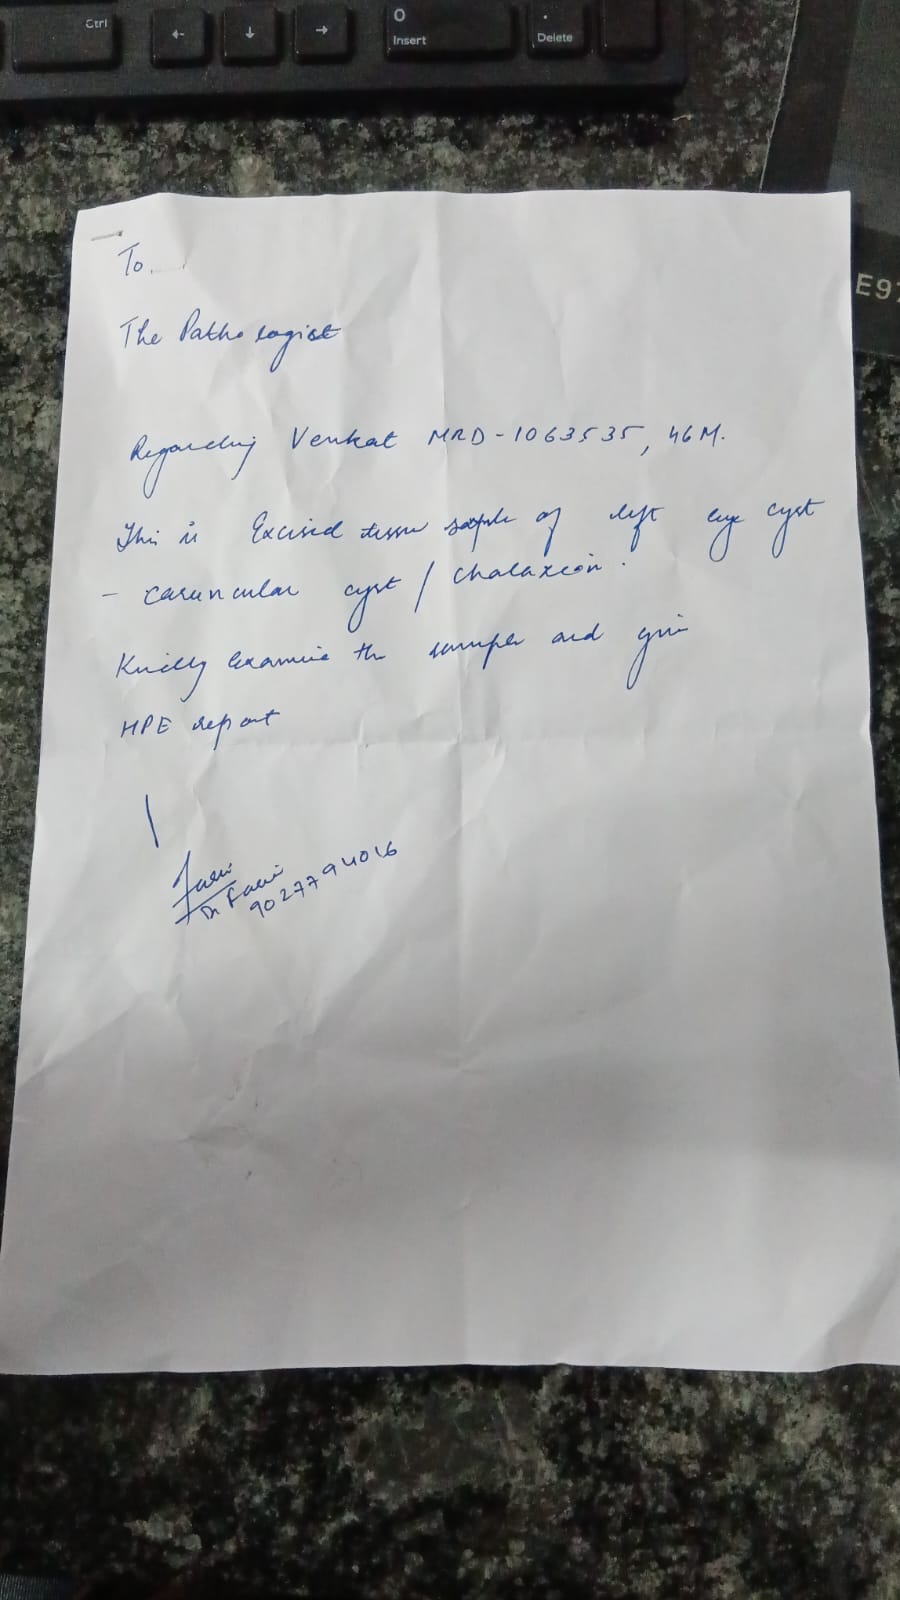 Ctrl
←
↓
→
0
Insert
.
Delete
E97
To
The Pathologist
Regarding Venkat MRD-1063535, 46M.
This is Excised tissue sample of left eye cyst
- caruncular cyst / chalaxion.
Kindly examine the sample and give
HPE report
Dr
9027794016